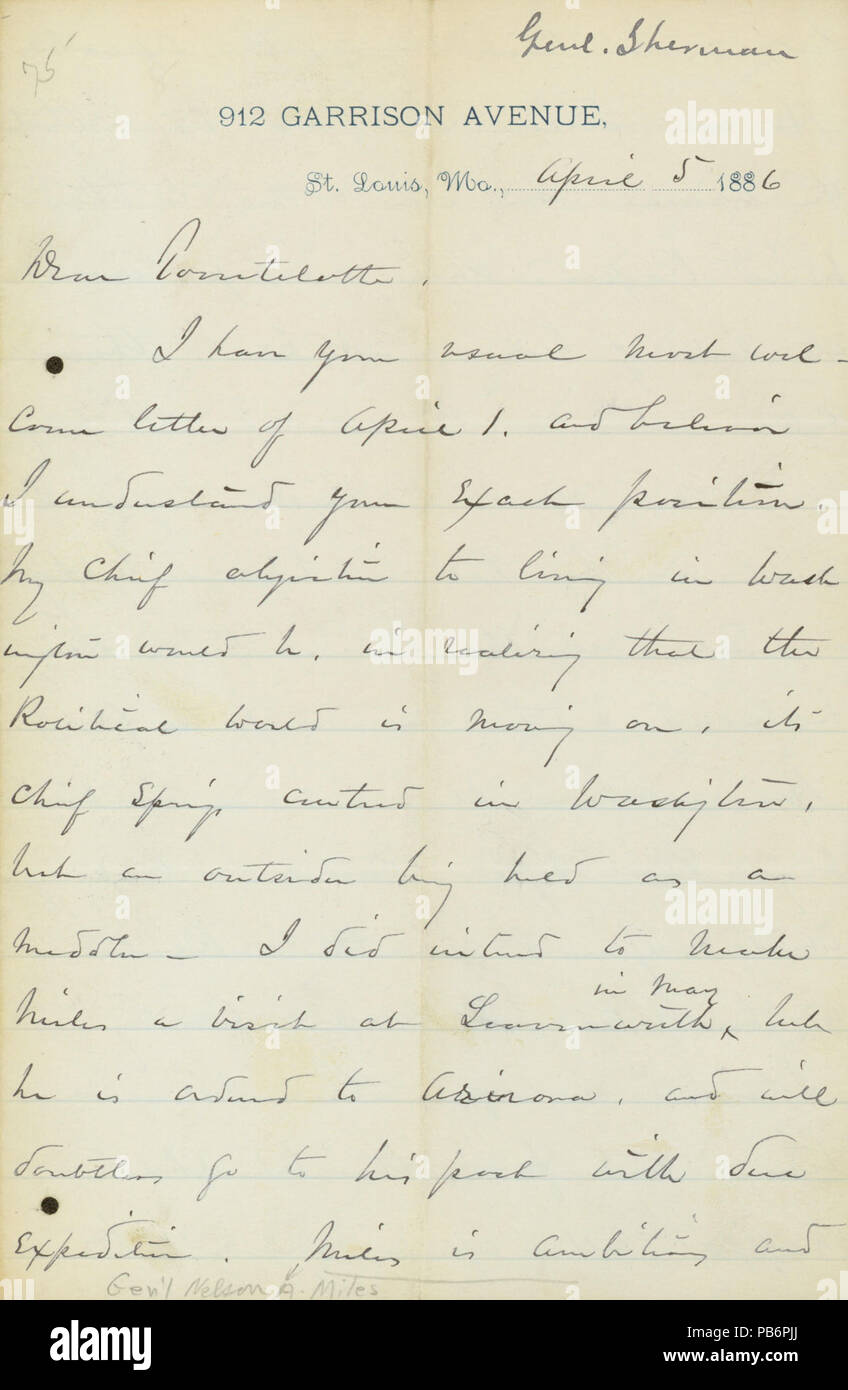 75
Genl. Sherman
912 GARRISON AVENUE,
St. Louis, Mo., April 5 1886
Dear Tourtelotte.
I have your usual most wel-
come letter of April 1. and believe
I understand your exact position.
My chief objection to living in Wash
ington would be, in realizing that the
Political world is moving on, its
chief springs centred in Washington,
but an outsider being held as a
meddler – I did intend to make
in May
Miles a visit at Leavenworth, but
he is ordered to Arizona, and will
doubtless go to his post with due
Expedition. Miles is ambitious and
Gen'l Nelson A. Miles
alamy
Image ID: PB6PJJ
www.alamy.com